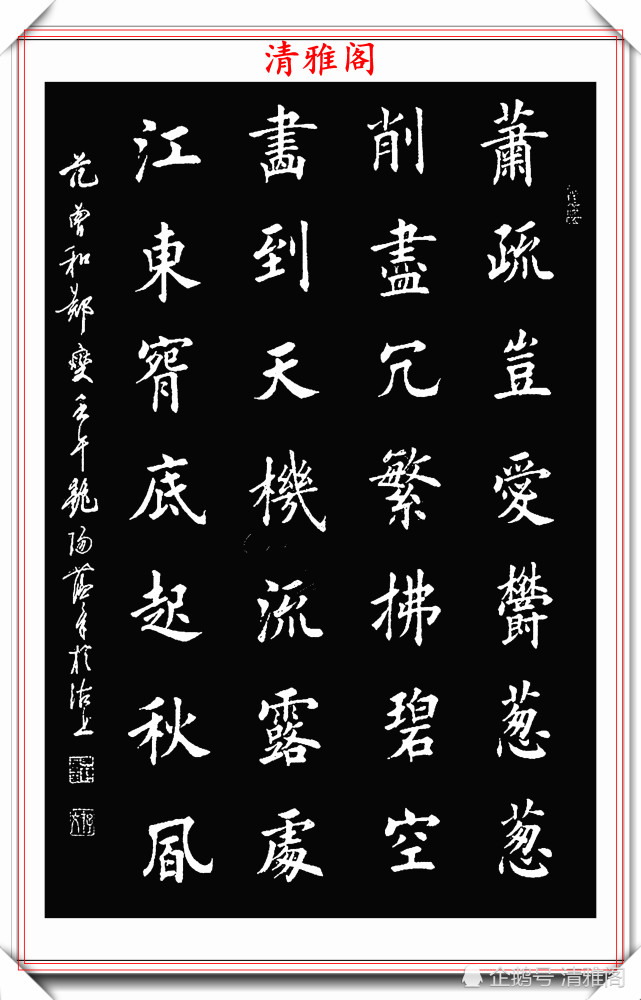 清雅阁
蕭疏豈愛鬱葱葱
削盡冗繁拂碧空
畫到天機流露處
江東底起秋風
范曾和鄭燮壬午艷陽於沽上
企鹅号 清雅阁